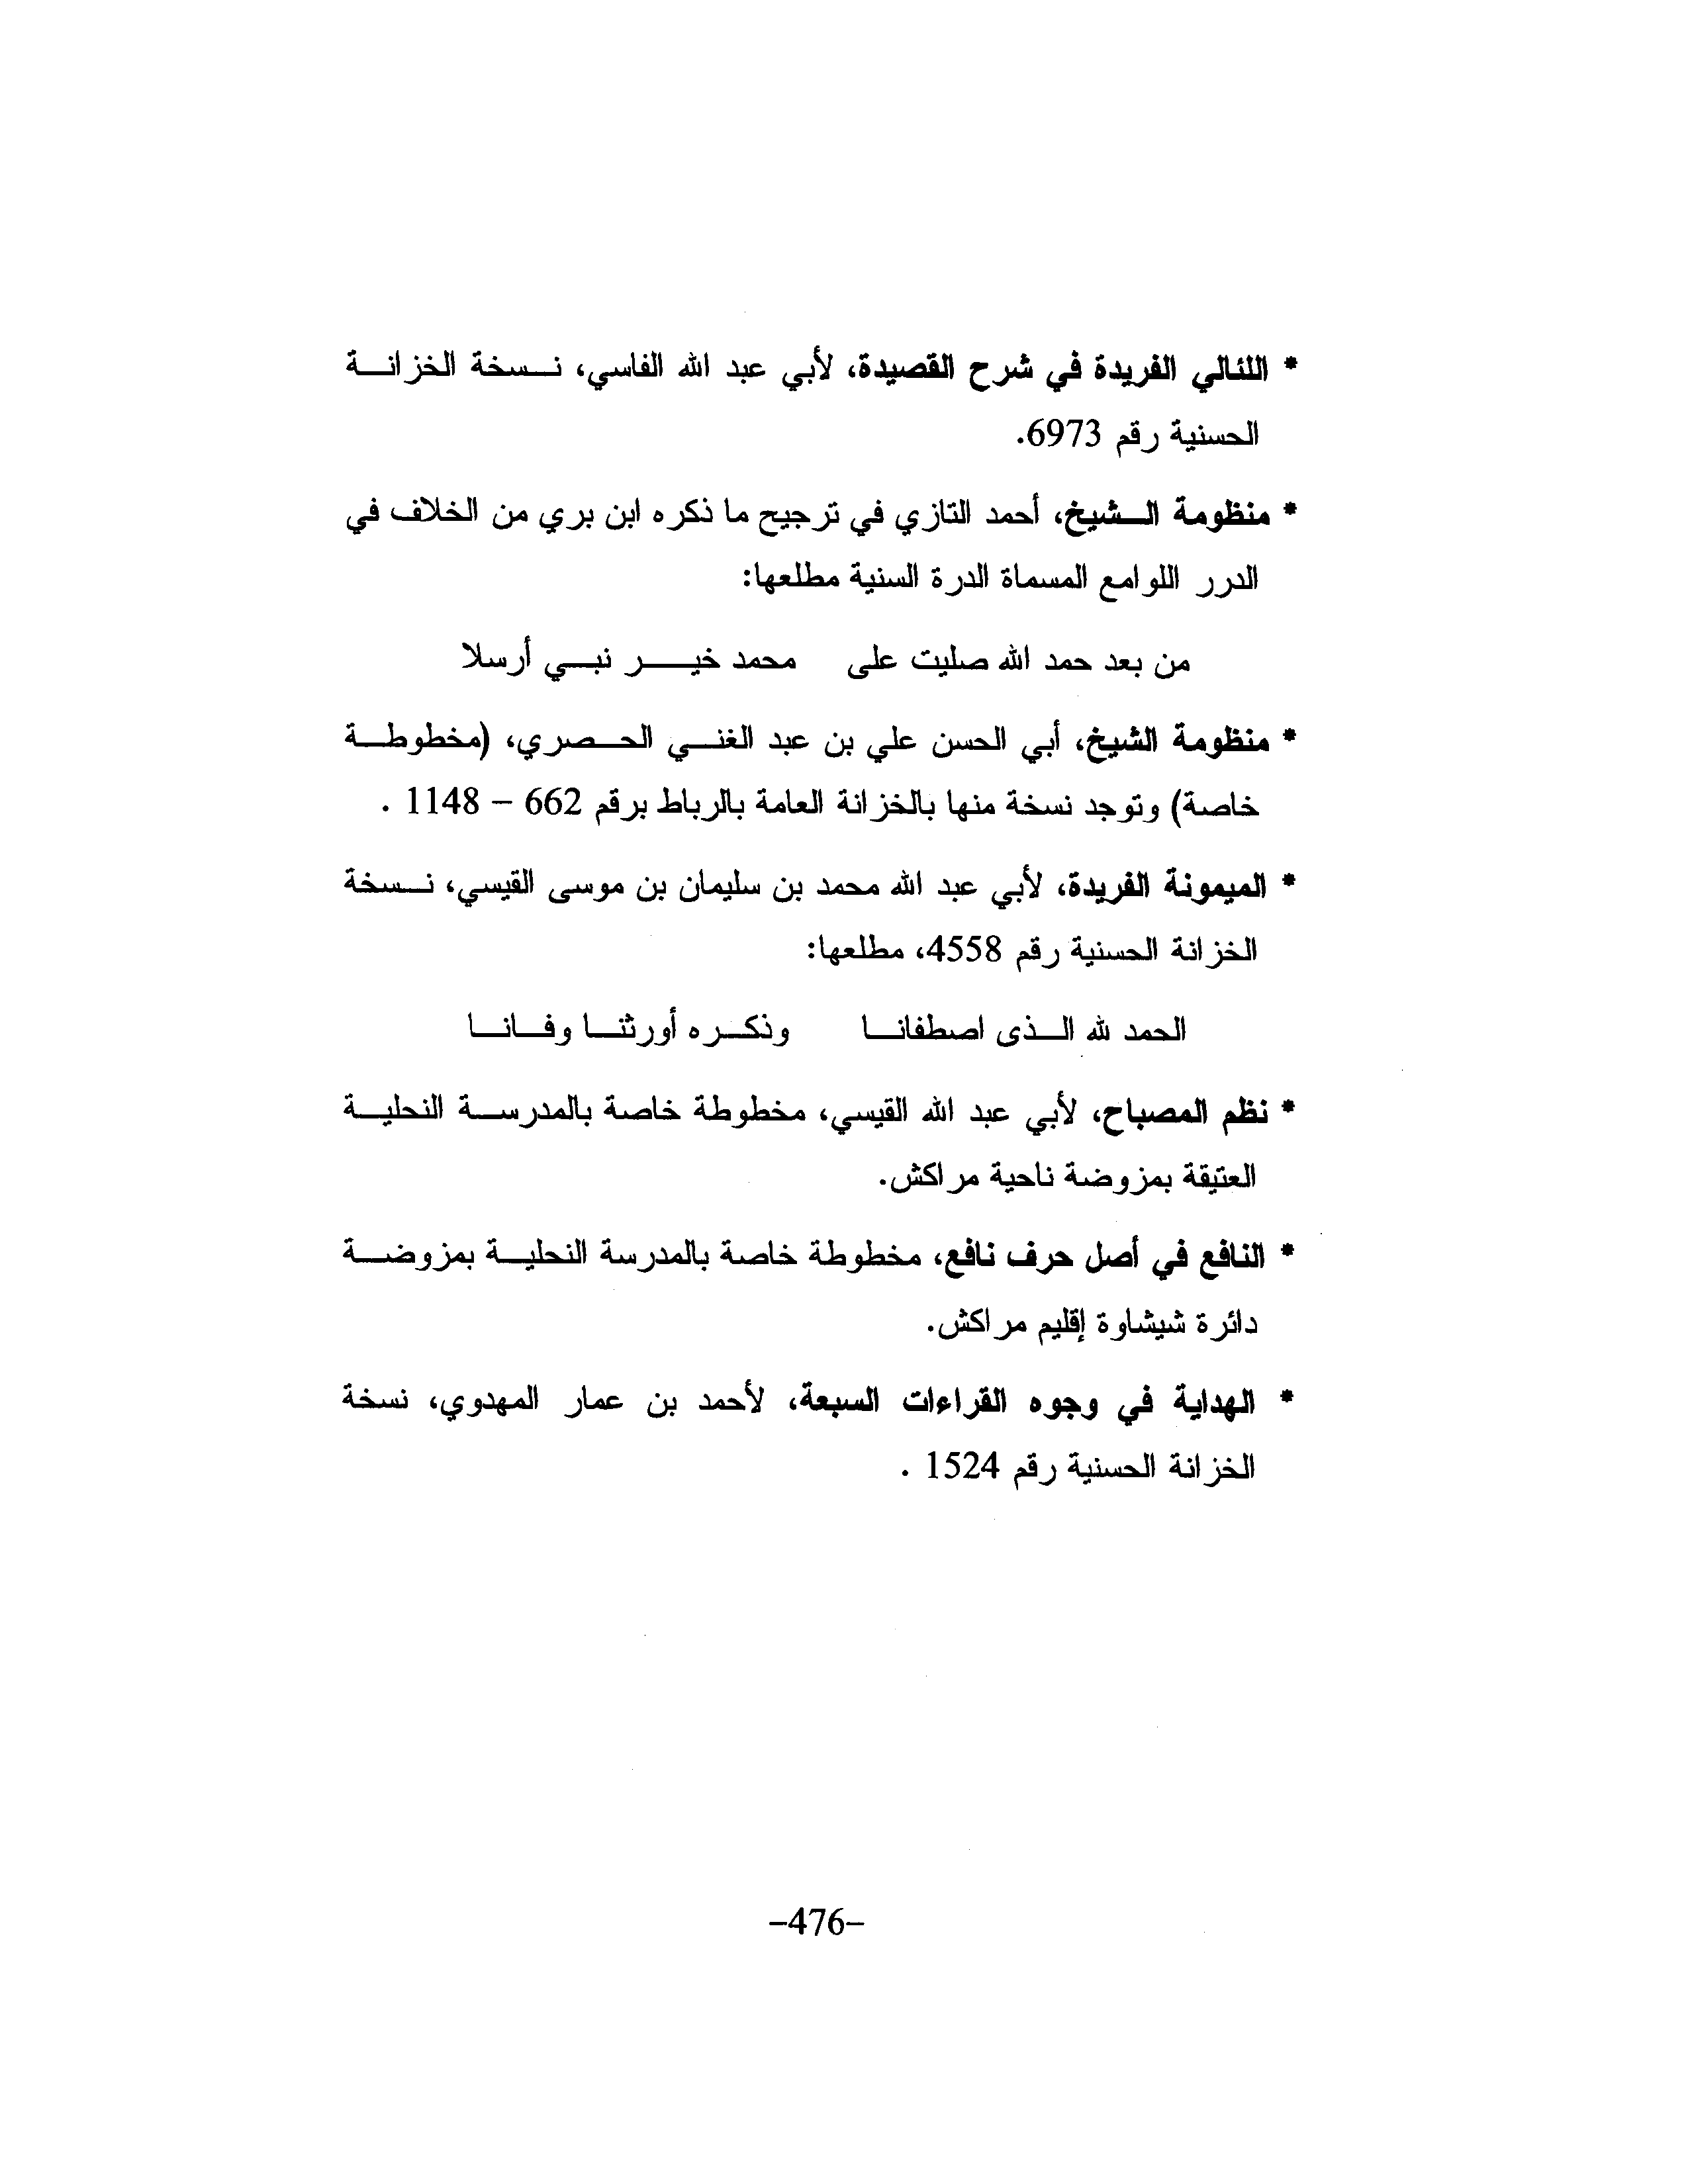 * اللئالي الفريدة في شرح القصيدة، لأبي عبد الله الفاسي، نسخة الخزانة
الحسنية رقم 6973.
* منظومة الشيخ، أحمد التازي في ترجيح ما ذكره ابن بري من الخلاف في
الدرر اللوامع المسماة الدرة السنية مطلعها:
من بعد حمد الله صليت على محمد خير نبي أرسلا
* منظومة الشيخ، أبي الحسن علي بن عبد الغني الحصري، (مخطوطة
خاصة) وتوجد نسخة منها بالخزانة العامة بالرباط برقم 662 – 1148 .
* الميمونة الفريدة، لأبي عبد الله محمد بن سليمان بن موسى القيسي، نسخة
الخزانة الحسنية رقم 4558، مطلعها:
الحمد لله الذى اصطفانا وذكره أورثنا وفانا
* نظم المصباح، لأبي عبد الله القيسي، مخطوطة خاصة بالمدرسة النحلية
العتيقة بمزوضة ناحية مراكش.
* النافع في أصل حرف نافع، مخطوطة خاصة بالمدرسة النحلية بمزوضة
دائرة شيشاوة إقليم مراكش.
* الهداية في وجوه القراءات السبعة، لأحمد بن عمار المهدوي، نسخة
الخزانة الحسنية رقم 1524 .
-476-